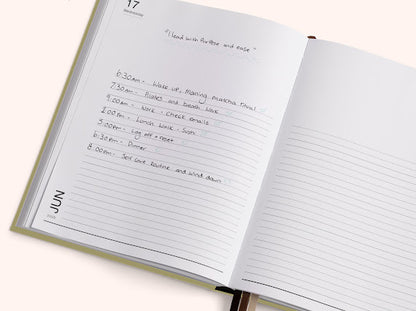 17
Wednesday
"I lead with purpose and ease"
6:30am - Wake up, Morning matcha ritual
7:30am - Pilates and breath work
9:00am - Work - check emails
1:00pm - Lunch walk - Sun
5:00pm - Log off + reset
6:30pm - Dinner
8:00pm - Self care routine and wind down
JUN